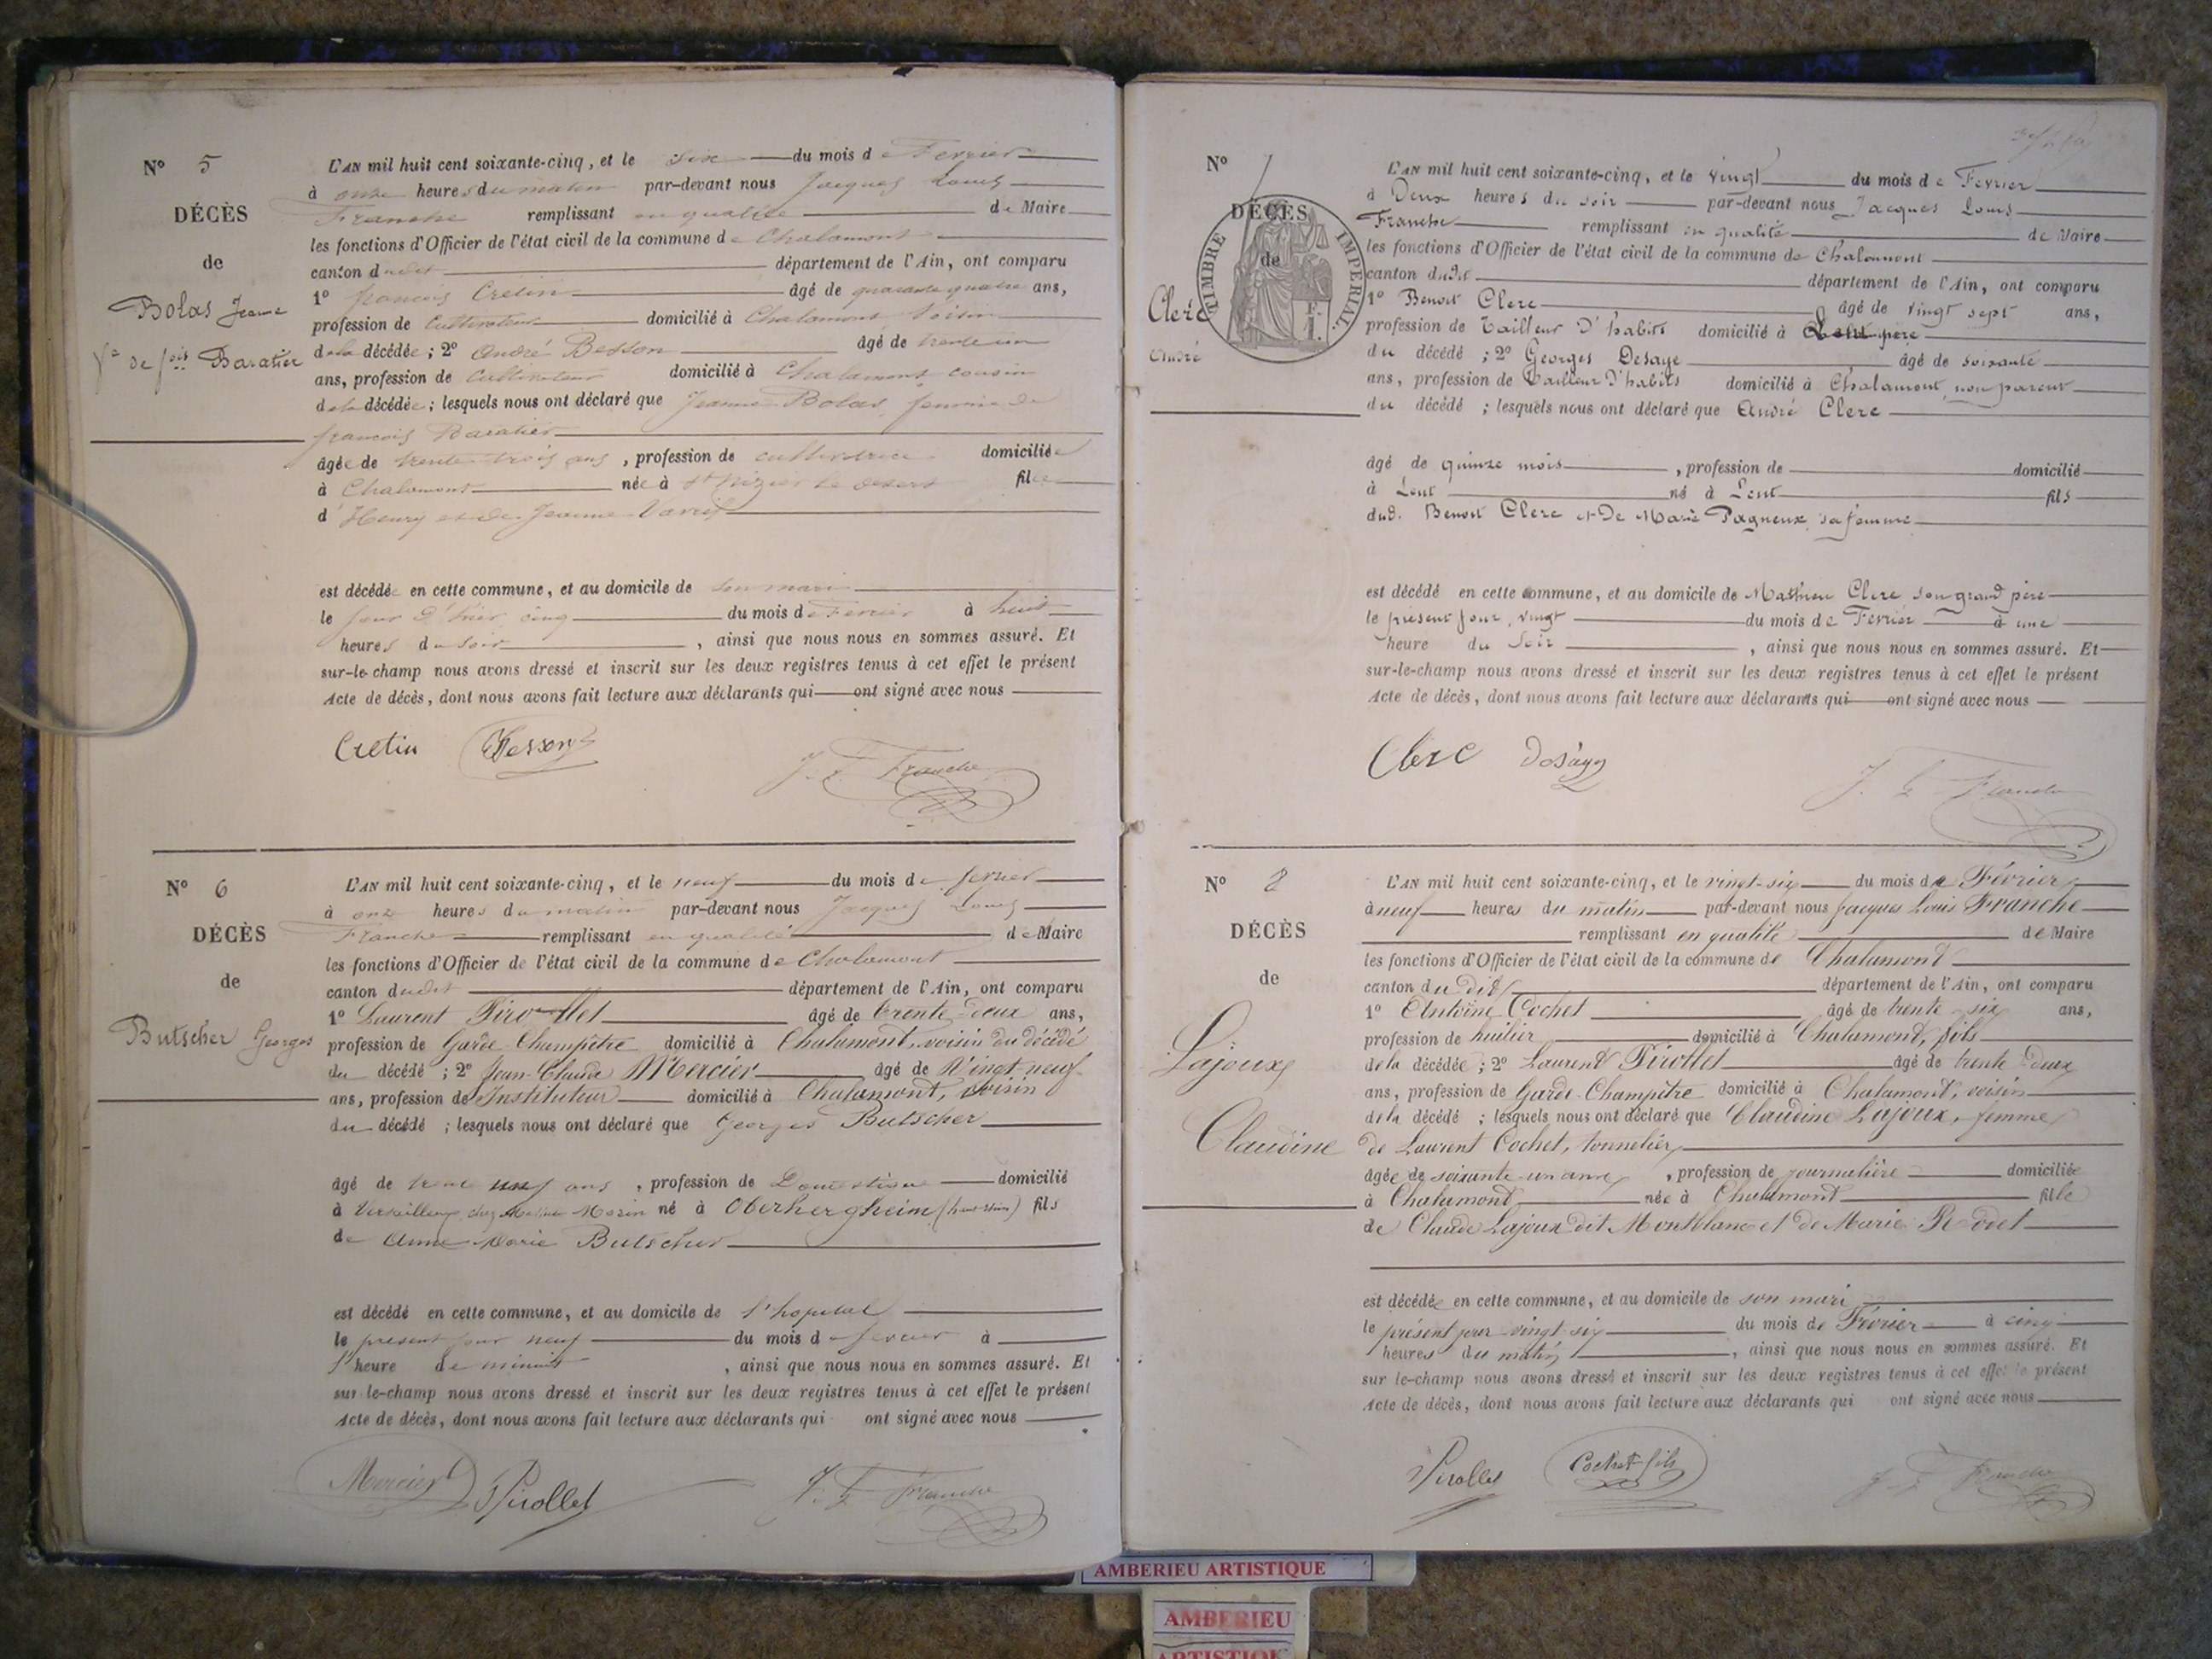 N° 5
DÉCÈS
de
Bolas Jeanne
Vve de fois Baratier
L'AN mil huit cent soixante-cinq, et le six du mois de Fevrier
à onze heures du matin par-devant nous Jacques Louis
Franche remplissant en qualité de Maire
les fonctions d'Officier de l'état civil de la commune de Chalamont
canton dudit département de l'Ain, ont comparu
1° francois Cretin âgé de quarante quatre ans,
profession de Cultivateur domicilié à Chalamont voisin
de la décédée; 2° André Besson âgé de trente un
ans, profession de Cultivateur domicilié à Chalamont cousin
de la décédée; lesquels nous ont déclaré que Jeanne Bolas, femme de
francois Baratier
âgée de trente trois ans, profession de cultivatrice domiciliée
à Chalamont née à St Nizier le desert fille
d'Henry et de Jeanne
est décédée en cette commune, et au domicile de son mari
le jour d'hier cinq du mois de Fevrier à huit
heures du soir, ainsi que nous nous en sommes assuré. Et
sur-le-champ nous avons dressé et inscrit sur les deux registres tenus à cet effet le présent
Acte de décès, dont nous avons fait lecture aux déclarants qui ont signé avec nous
Cretin Besson J. L. Franche
N° 6
DÉCÈS
de
Butscher Georges
L'AN mil huit cent soixante-cinq, et le neuf du mois de fevrier
à onze heures du matin par-devant nous Jacques Louis
Franche remplissant en qualité de Maire
les fonctions d'Officier de l'état civil de la commune de Chalamont
canton dudit département de l'Ain, ont comparu
1° Laurent Pirollet âgé de trente deux ans,
profession de Garde-Champêtre domicilié à Chalamont, voisin du décédé
du décédé; 2° Jean-Claude Mercier âgé de Vingt neuf
ans, profession de Instituteur domicilié à Chalamont, voisin
du décédé; lesquels nous ont déclaré que Georges Butscher
âgé de trente neuf ans, profession de Domestique domicilié
à Versailleux chez Morin né à Oberhergheim (haut-rhin) fils
de Anne Marie Butscher
est décédé en cette commune, et au domicile de l'hopital
le présent jour neuf du mois de fevrier à
l'heure de minuit, ainsi que nous nous en sommes assuré. Et
sur-le-champ nous avons dressé et inscrit sur les deux registres tenus à cet effet le présent
Acte de décès, dont nous avons fait lecture aux déclarants qui ont signé avec nous
Mercier Pirollet J. L. Franche
N° 7
DÉCÈS
de
TIMBRE IMPERIAL
1 F.
Clerc
André
L'AN mil huit cent soixante-cinq, et le vingt du mois de Fevrier
à Deux heures du soir par-devant nous Jacques Louis
Franche remplissant en qualité de Maire
les fonctions d'Officier de l'état civil de la commune de Chalamont
canton dudit département de l'Ain, ont comparu
1° Benoit Clerc âgé de vingt sept ans,
profession de Tailleur d'habits domicilié à Lent père
du décédé; 2° Georges Desaye âgé de soixante
ans, profession de Tailleur d'habits domicilié à Chalamont, non parent
du décédé; lesquels nous ont déclaré que André Clerc
âgé de quinze mois, profession de domicilié
à Lent né à Lent fils
dud. Benoit Clerc et De Marie Pagneux sa femme
est décédé en cette commune, et au domicile de Mathieu Clerc son grand père
le présent jour, vingt du mois de Fevrier à une
heure du soir, ainsi que nous nous en sommes assuré. Et
sur-le-champ nous avons dressé et inscrit sur les deux registres tenus à cet effet le présent
Acte de décès, dont nous avons fait lecture aux déclarants qui ont signé avec nous
Clerc J. L. Franche
N° 8
DÉCÈS
de
Lajoux
Claudine
L'AN mil huit cent soixante-cinq, et le vingt-six du mois de Février
à neuf heures du matin par-devant nous Jacques Louis Franche
remplissant en qualité de Maire
les fonctions d'Officier de l'état civil de la commune de Chalamont
canton du dit département de l'Ain, ont comparu
1° Antoine Cochet âgé de trente-six ans,
profession de huilier domicilié à Chalamont, fils
de la décédée; 2° Laurent Pirollet âgé de trente deux
ans, profession de Garde-Champêtre domicilié à Chalamont, voisin
de la décédé; lesquels nous ont déclaré que Claudine Lajoux, femme
de Laurent Cochet, tonnelier,
âgée de soixante-un ans, profession de journalière domiciliée
à Chalamont née à Chalamont fille
de Claude Lajoux dit Montblanc et de Marie Rodet
est décédée en cette commune, et au domicile de son mari
le présent jour vingt-six du mois de Février à cinq
heures du matin, ainsi que nous nous en sommes assuré. Et
sur le-champ nous avons dressé et inscrit sur les deux registres tenus à cet effet le présent
Acte de décès, dont nous avons fait lecture aux déclarants qui ont signé avec nous
Pirollet Cochet fils J. L. Franche
AMBERIEU ARTISTIQUE
AMBERIEU
ARTISTIQUE